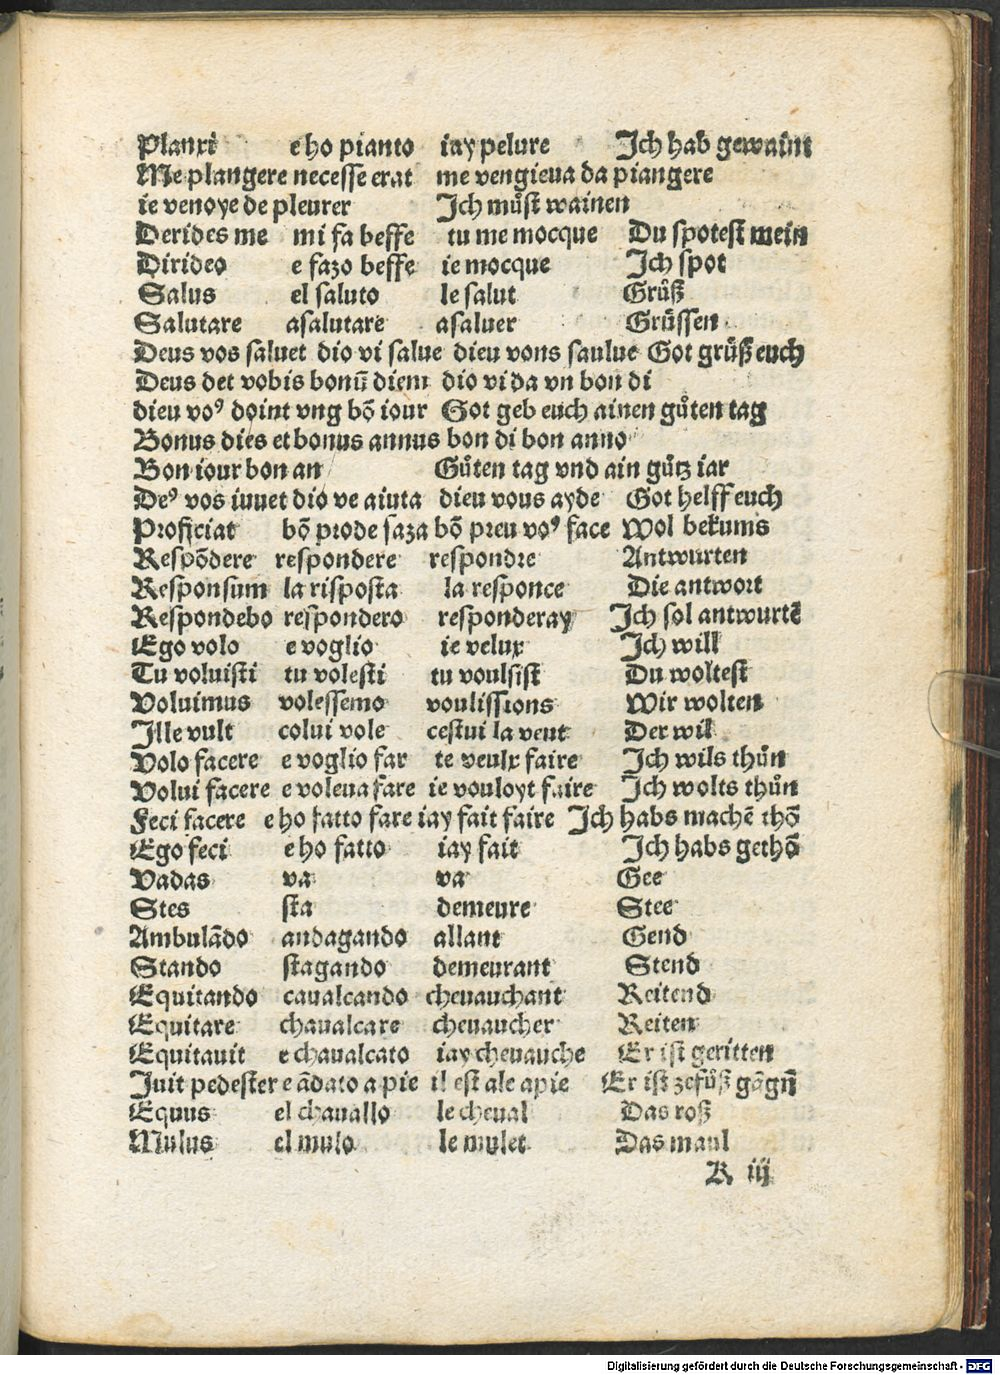 Planxi e ho pianto iay pelure Jch hab gewaint
Me plangere necesse erat me vengieua da piangere
ie venoye de pleurer Jch muͦst wainen
Derides me mi fa beffe tu me mocque Du spotest mein
Dirideo e fazo beffe ie mocque Jch spot
Salus el saluto le salut Gruͤß
Salutare asalutare asaluer Gruͤssen
Deus vos saluet dio vi salue dieu vons saulue Got gruͤß euch
Deus det vobis bonū diem dio vi da vn bon di
dieu voꝰ doint vng bō iour Got geb euch ainen guͦten tag
Bonus dies et bonus annus bon di bon anno
Bon iour bon an Guͦten tag vnd ain guͦtz iar
Deꝰ vos iuuet dio ve aiuta dieu vous ayde Got helff euch
Proficiat bō prode saza bō preu voꝰ face Wol bekums
Respōdere respondere respondre Antwurten
Responsum la risposta la responce Die antwort
Respondebo respondero responderay Jch sol antwurtē
Ego volo e voglio ie velux Jch will
Tu voluisti tu volesti tu voulsist Du woltest
Voluimus volessemo voulissions Wir wolten
Jlle vult colui vole cestui la veut Der wil
Volo facere e voglio far te veulx faire Jch wils thuͦn
Volui facere e voleua fare ie vouloyt faire Jch wolts thuͦn
Feci facere e ho fatto fare iay fait faire Jch habs machē thō
Ego feci e ho fatto iay fait Jch habs gethō
Vadas va va Gee
Stes sta demeure Stee
Ambulādo andagando allant Gend
Stando stagando demeurant Stend
Equitando caualcando cheuauchant Reitend
Equitare chaualcare cheuaucher Reiten
Equitauit e chaualcato iay cheuauche Er ist geritten
Juit pedester e ādato a pie il est ale apie Er ist zefuͦß gāgn̄
Equus el chauallo le cheual Das roß
Mulus el mulo le mulet Das maul
K iij
Digitalisierung gefördert durch die Deutsche Forschungsgemeinschaft - DFG